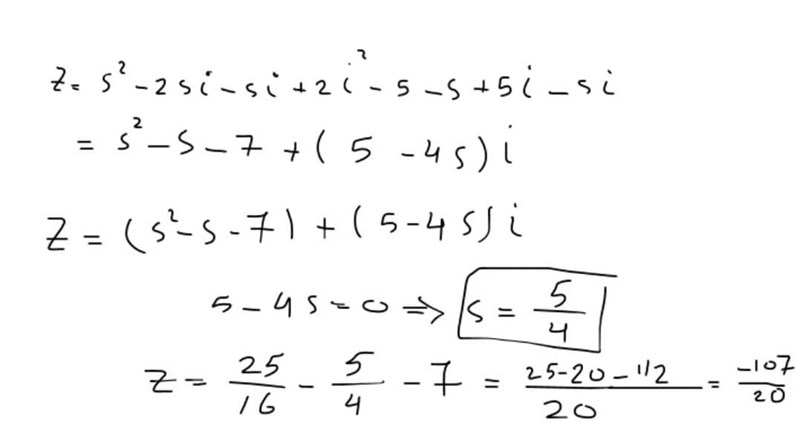 Z = s² - 2si - si + 2i² - 5 - s + 5i - si
= s² - s - 7 + (5 - 4s)i
Z = (s² - s - 7) + (5 - 4s)i
5 - 4s = 0 ⇒ s = 5/4
Z = 25/16 - 5/4 - 7 = (25-20-112)/20 = -107/20